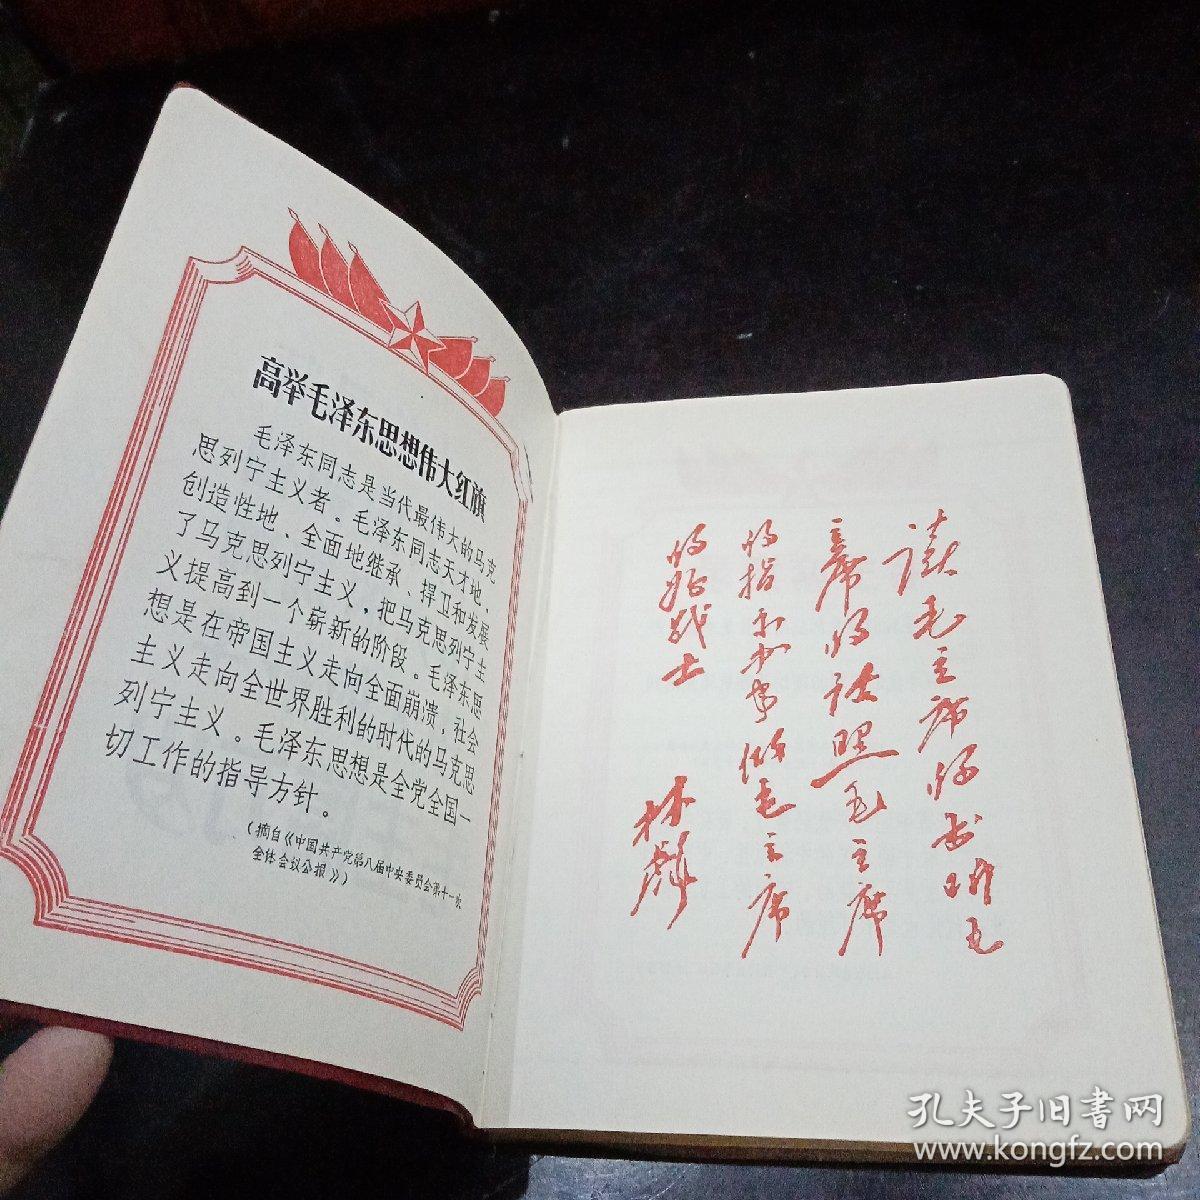 高举毛泽东思想伟大红旗
毛泽东同志是当代最伟大的马克
思列宁主义者。毛泽东同志天才地、
创造性地、全面地继承、捍卫和发展
了马克思列宁主义，把马克思列宁主
义提高到一个崭新的阶段。毛泽东思
想是在帝国主义走向全面崩溃，社会
主义走向全世界胜利的时代的马克思
列宁主义。毛泽东思想是全党全国一
切工作的指导方针。
（摘自《中国共产党第八届中央委员会第十一次
全体会议公报》）
读毛主席的书听毛
主席的话照毛主席
的指示办事做毛主席
的好战士
林彪
孔夫子旧書网
www.kongfz.com